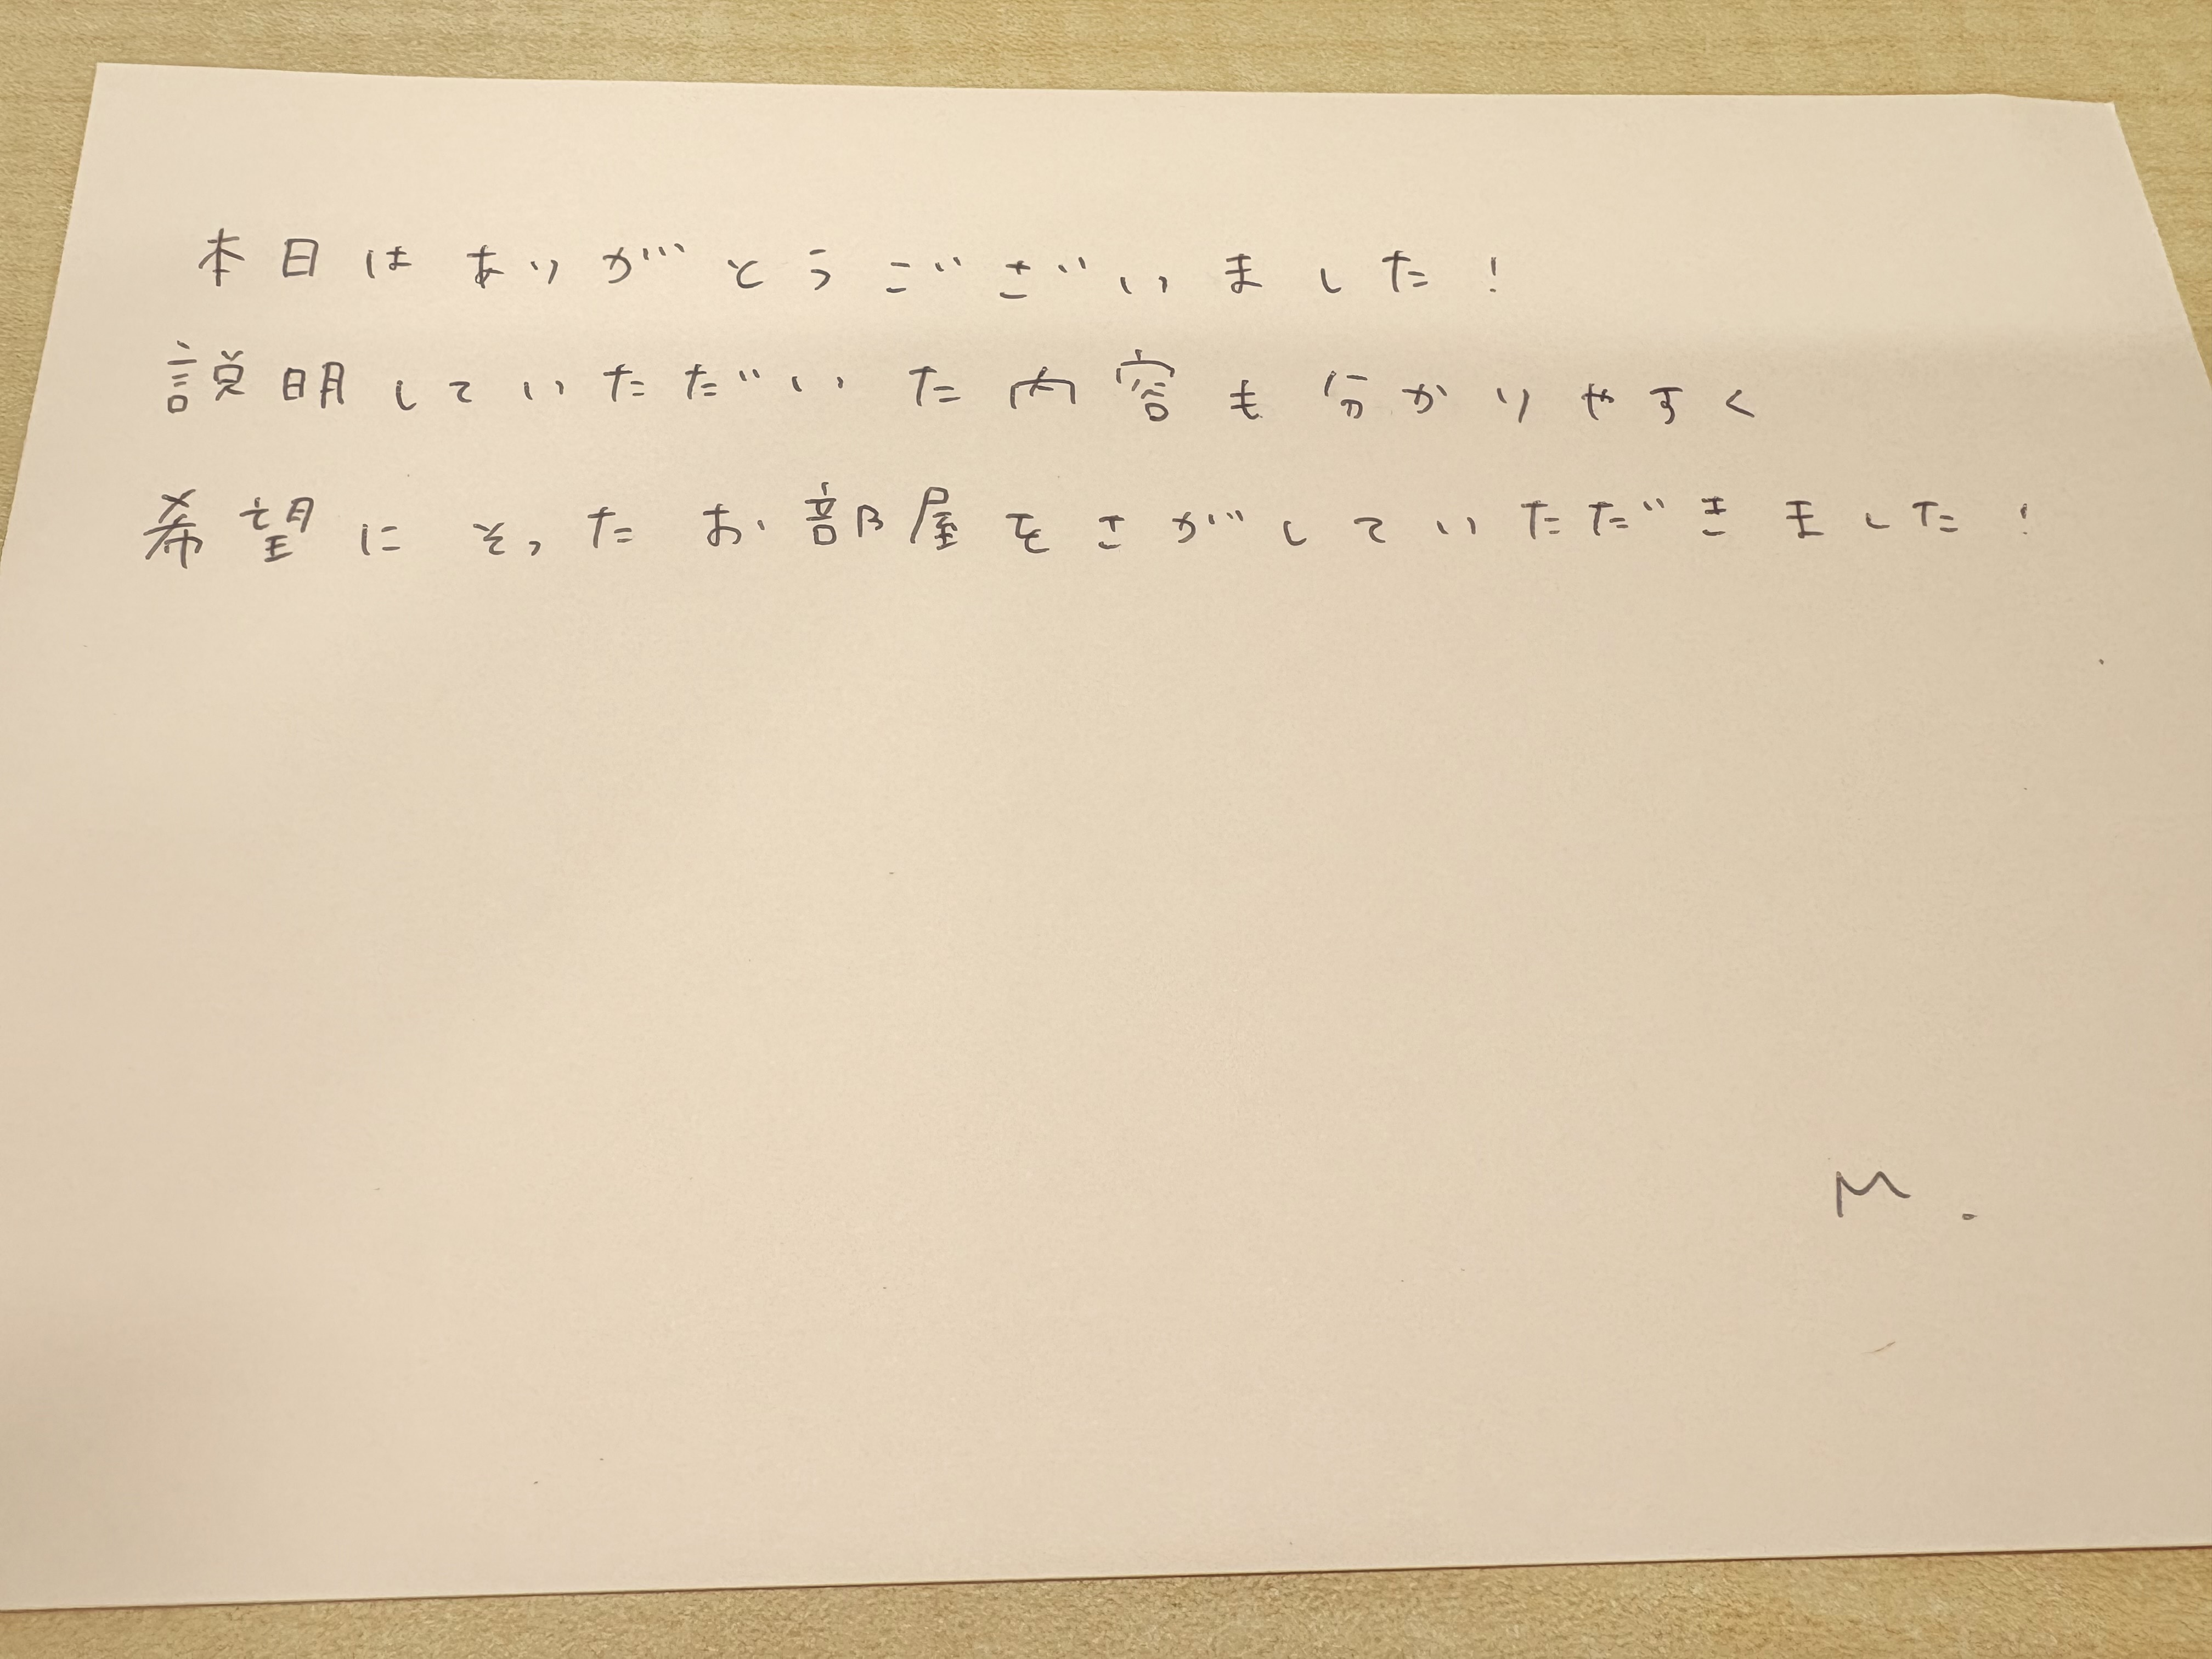 本日はありがとうございました!
説明していただいた内容も分かりやすく
希望にそったお部屋をさがしていただきました!
M.